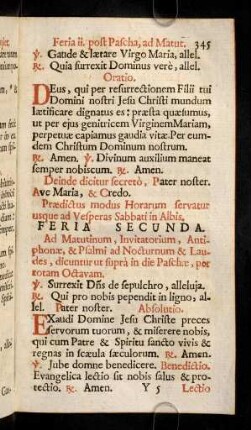 Feria ii. post Pascha, ad Matut. 345
℣. Gaude & lætare Virgo Maria, allel.
℟. Quia surrexit Dominus verè, allel.
Oratio.
DEus, qui per resurrectionem Filii tui
Domini nostri Jesu Christi mundum
lætificare dignatus es: præsta quæsumus,
ut per ejus genitricem Virginem Mariam,
perpetuæ capiamus gaudia vitæ. Per eum-
dem Christum Dominum nostrum.
℟. Amen. ℣. Divinum auxilium maneat
semper nobiscum. ℟. Amen.
Deinde dicitur secretò, Pater noster.
Ave Maria, & Credo.
Prædictus modus Horarum servatur
usque ad Vesperas Sabbati in Albis.
FERIA SECUNDA.
Ad Matutinum, Invitatorium, Anti-
phonæ, & Psalmi ad Nocturnum & Lau-
des, dicuntur ut suprà in die Paschæ, per
totam Octavam.
℣. Surrexit Dñs de sepulchro, alleluja.
℟. Qui pro nobis pependit in ligno; al-
lel. Pater noster. Absolutio.
EXaudi Domine Jesu Christe preces
servorum tuorum, & miserere nobis,
qui cum Patre & Spiritu sancto vivis &
regnas in sæcula sæculorum. ℟. Amen.
℣. Jube domne benedicere. Benedictio.
Evangelica lectio sit nobis salus & pro-
tectio. ℟. Amen. Y 5 Lectio